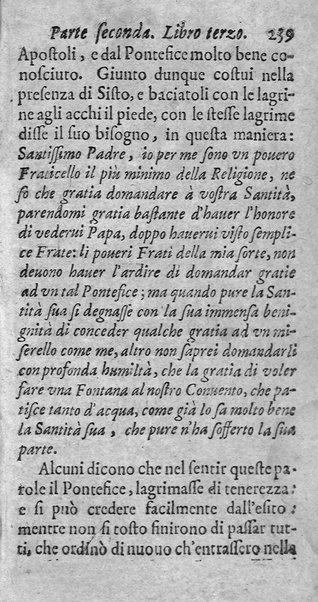 Parte seconda. Libro terzo. 239
Apostoli, e dal Pontefice molto bene co-
nosciuto. Giunto dunque costui nella
presenza di Sisto, e baciatoli con le lagri-
ne agli acchi il piede, con le stesse lagrime
disse il suo bisogno, in questa maniera:
Santissimo Padre, io per me sono vn pouero
Fraticello il più minimo della Religione, ne
sò che gratia domandare à vostra Santità,
parendomi gratia bastante d'hauer l'honore
di vederui Papa, doppo hauerui visto sempli-
ce Frate: li poueri Frati della mia sorte, non
deuono hauer l'ardire di domandar gratie
ad vn tal Pontefice; ma quando pure la San-
tità sua si degnasse con la sua immensa beni-
gnità di conceder qualche gratia ad vn mi-
serello come me, altro non saprei domandarli
con profonda humiltà, che la gratia di voler
fare vna Fontana al nostro Conuento, che pa-
tisce tanto d'acqua, come già lo sa molto bene
la Santità sua, che pure n'ha sofferto la sua
parte.
Alcuni dicono che nel sentir queste pa-
role il Pontefice, lagrimasse di tenerezza:
e si può credere facilmente dall'esito:
mentre non si tosto finirono di passar tut-
ti, che ordinò di nuouo ch'entrassero nella